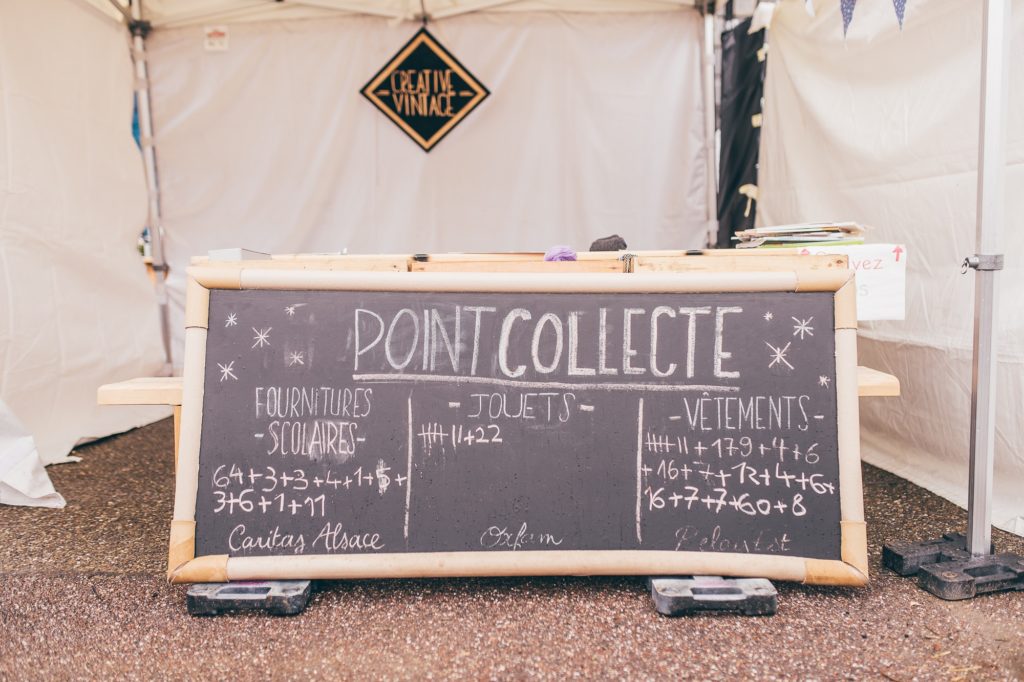 CREATIVE
VINTAGE
POINT COLLECTE
FOURNITURES
-SCOLAIRES-
64+3+3+4+1+5+
3+6+1+11
Caritas Alsace
-JOUETS-
+22
Oxfam
-VÊTEMENTS-
+179+4+6
+16+7+12+4+6+
16+7+7+60+8